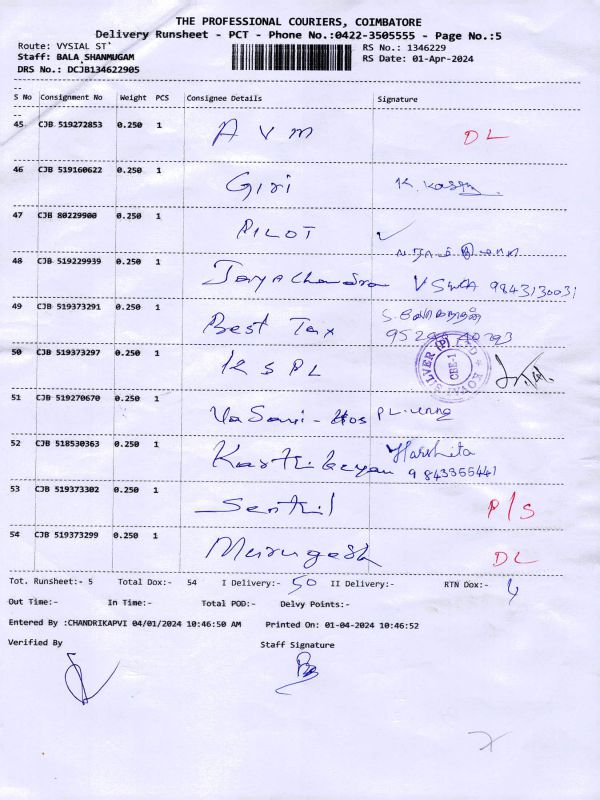 THE PROFESSIONAL COURIERS, COIMBATORE
Delivery Runsheet - PCT - Phone No.:0422-3505555 - Page No.:5
Route: VYSIAL ST' RS No.: 1346229
Staff: BALA SHANMUGAM RS Date: 01-Apr-2024
DRS No.: DCJB134622905
S No Consignment No Weight PCS Consignee Details Signature
45 CJB 519272853 0.250 1 AVM DL
46 CJB 519160622 0.250 1 Giri K.
47 CJB 80229900 0.250 1 PILOT ✓
48 CJB 519229939 0.250 1 JayaChandra 9843130031
49 CJB 519373291 0.250 1 Best Tax
50 CJB 519373297 0.250 1 KSPL
SILVER (P) CBE-1
51 CJB 519270670 0.250 1 VaSan-Hos
52 CJB 518530363 0.250 1 Karthikeyan Harshita
9843355441
53 CJB 519373302 0.250 1 Senthil P/S
54 CJB 519373299 0.250 1 Murugesh DL
Tot. Runsheet:- 5 Total Dox:- 54 I Delivery:- 50 II Delivery:- RTN Dox:- 4
Out Time:- In Time:- Total POD:- Delvy Points:-
Entered By :CHANDRIKAPVI 04/01/2024 10:46:50 AM Printed On: 01-04-2024 10:46:52
Verified By Staff Signature